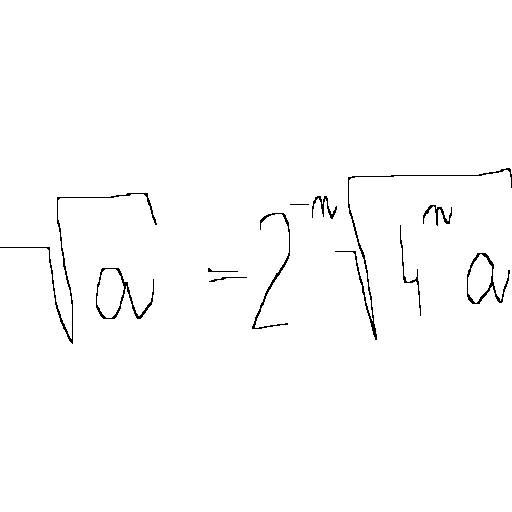 \sqrt{a} = 2^{-n} \sqrt{4^n a}